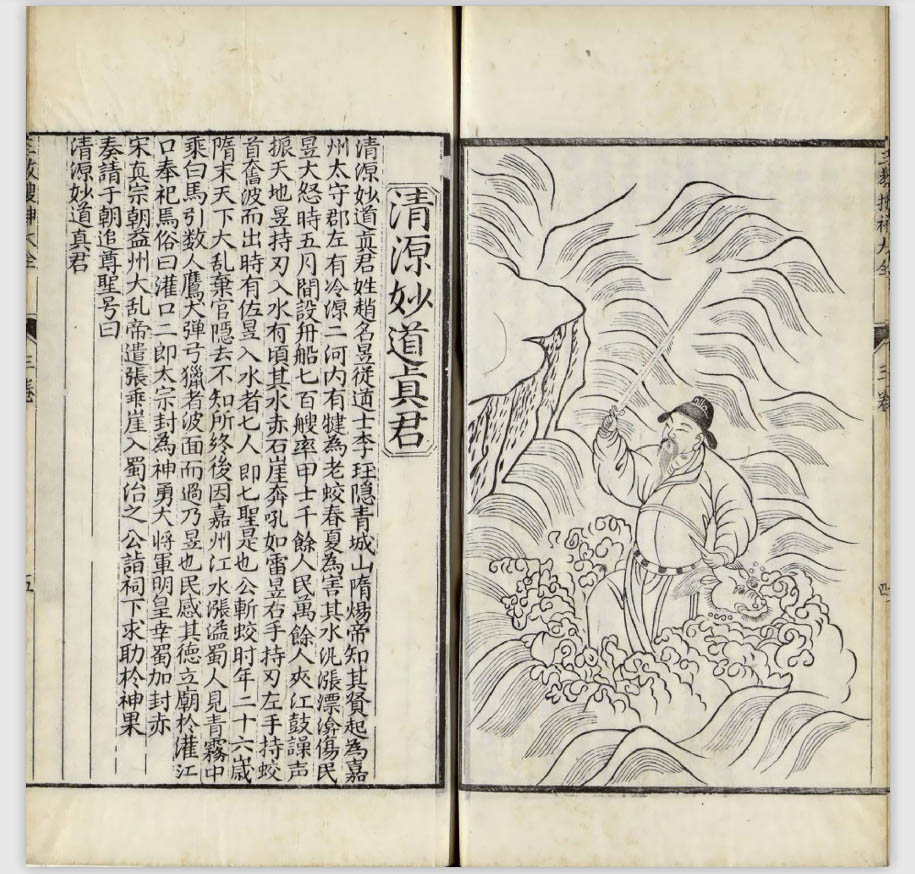 三教搜神大全
三卷
四
清源妙道眞君
清源妙道眞君姓趙名昱従道士李珏隐青城山隋煬帝知其賢起為嘉
州太守郡左有冷源二河内有犍為老蛟春夏為害其水汎漲漂渰傷民
昱大怒時五月間設舟船七百艘率甲士千餘人民萬餘人夾江鼓譟声
振天地昱持刃入水有頃其水赤石崖奔吼如雷昱右手持刃左手持蛟
首奮波而出時有佐昱入水者七人即七聖是也公斬蛟时年二十六歳
隋末天下大乱棄官隠去不知所終後因嘉州江水漲溢蜀人見青霧中
乘白馬引数人鷹犬弹弓獵者波面而過乃昱也民感其徳立廟於灌江
口奉祀焉俗曰灌口二郎太宗封為神勇大将軍明皇幸蜀加封赤
宋真宗朝益州大乱帝遣張乖崖入蜀治之公詣祠下求助於神果
奏請于朝追尊聖号曰
清源妙道真君
三教搜神大全
三卷
五